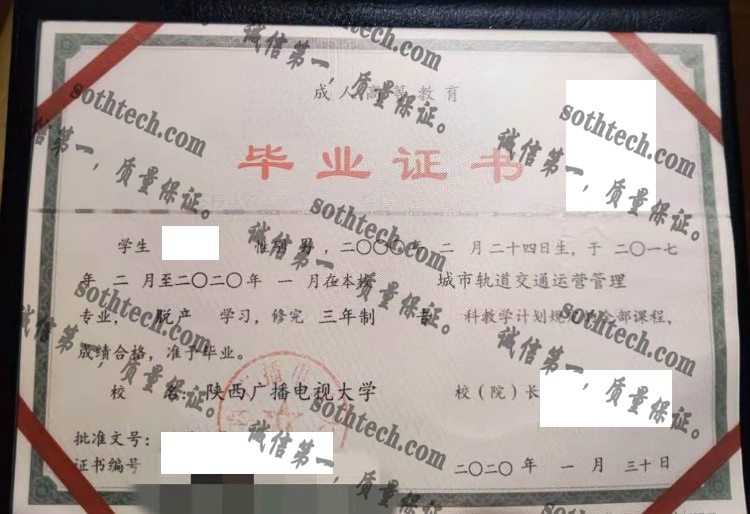 成人高等教育
毕业证书
学生 性别 男，二〇〇〇年 二 月二十四日生，于 二〇一七
年 二 月至二〇二〇年 一 月在本校 城市轨道交通运营管理
专业， 脱产 学习，修完 三年制 科教学计划规定的全部课程，
成绩合格，准予毕业。
校 名：陕西广播电视大学 校（院）长
批准文号：
证书编号 二〇二〇年 一 月 三十日
sothtech.com
诚信第一，质量保证。
sothtech.com
诚信第一，质量保证。
sothtech.com
诚信第一，质量保证。
sothtech.com
诚信第一，质量保证。
sothtech.com
诚信第一，质量保证。
sothtech.com
诚信第一，质量保证。
sothtech.com
诚信第一，质量保证。